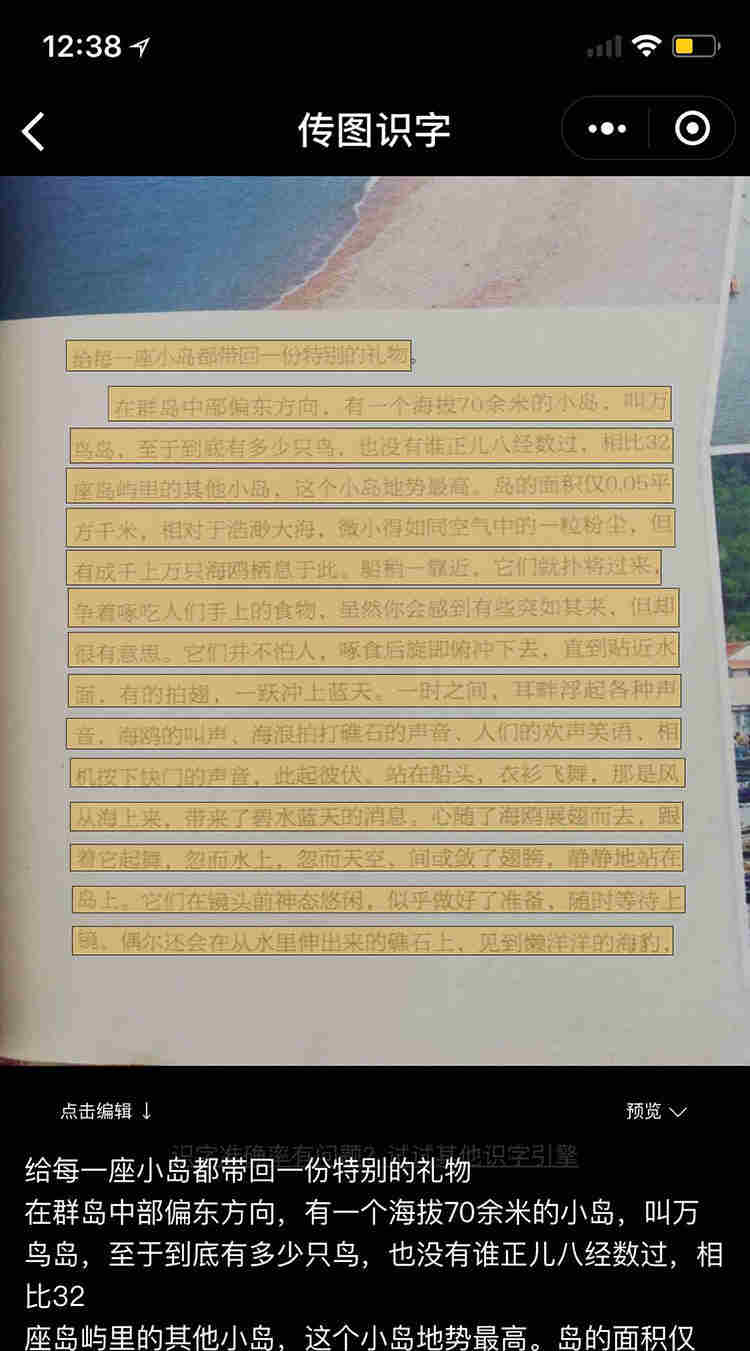 12:38
传图识字
给每一座小岛都带回一份特别的礼物。
在群岛中部偏东方向，有一个海拔70余米的小岛，叫万
鸟岛，至于到底有多少只鸟，也没有谁正儿八经数过，相比32
座岛屿里的其他小岛，这个小岛地势最高。岛的面积仅0.05平
方千米，相对于浩渺大海，微小得如同空气中的一粒粉尘，但
有成千上万只海鸥栖息于此。船稍一靠近，它们就扑将过来，
争着啄吃人们手上的食物，虽然你会感到有些突如其来，但却
很有意思。它们并不怕人，啄食后旋即俯冲下去，直到贴近水
面，有的拍翅，一跃冲上蓝天。一时之间，耳畔浮起各种声
音，海鸥的叫声、海浪拍打礁石的声音、人们的欢声笑语、相
机按下快门的声音，此起彼伏。站在船头，衣衫飞舞，那是风
从海上来，带来了碧水蓝天的消息。心随了海鸥展翅而去，跟
着它起舞，忽而水上，忽而天空、间或敛了翅膀，静静地站在
岛上。它们在镜头前神态悠闲，似乎做好了准备，随时等待上
镜。偶尔还会在从水里伸出来的礁石上，见到懒洋洋的海豹，
点击编辑 ↓
预览
识字准确率有问题？试试其他识字引擎
给每一座小岛都带回一份特别的礼物
在群岛中部偏东方向，有一个海拔70余米的小岛，叫万
鸟岛，至于到底有多少只鸟，也没有谁正儿八经数过，相
比32
座岛屿里的其他小岛，这个小岛地势最高。岛的面积仅